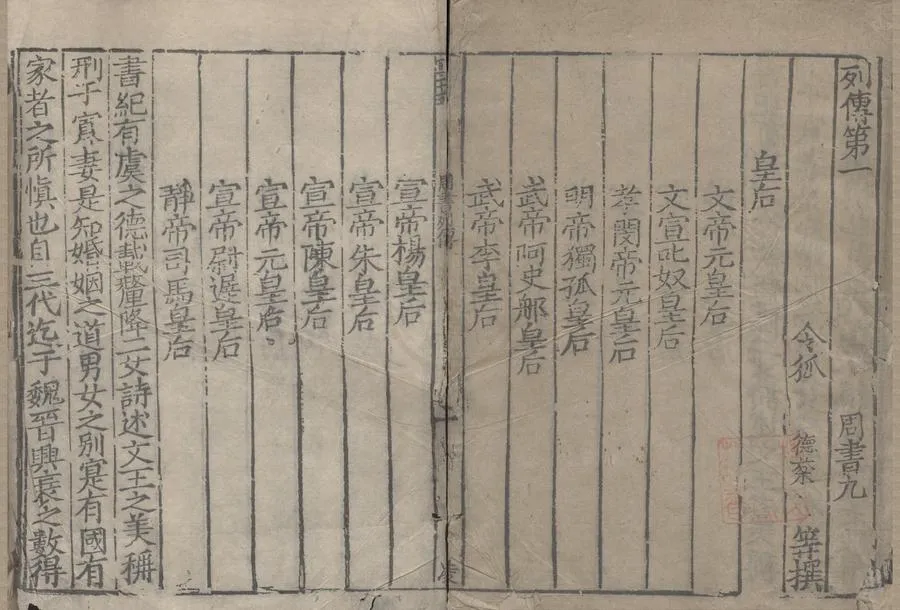 列傳第一
周書九
令狐
德棻
等撰
皇后
文帝元皇后
文宣叱奴皇后
孝閔帝元皇后
明帝獨孤皇后
武帝阿史那皇后
武帝李皇后
宣帝楊皇后
宣帝朱皇后
宣帝陳皇后
宣帝元皇后
宣帝尉遲皇后
靜帝司馬皇后
書紀有虞之德載釐降二女詩述文王之美稱
刑于寡妻是知婚姻之道男女之別寔有國有
家者之所慎也自三代迄于魏晉興衰之數得